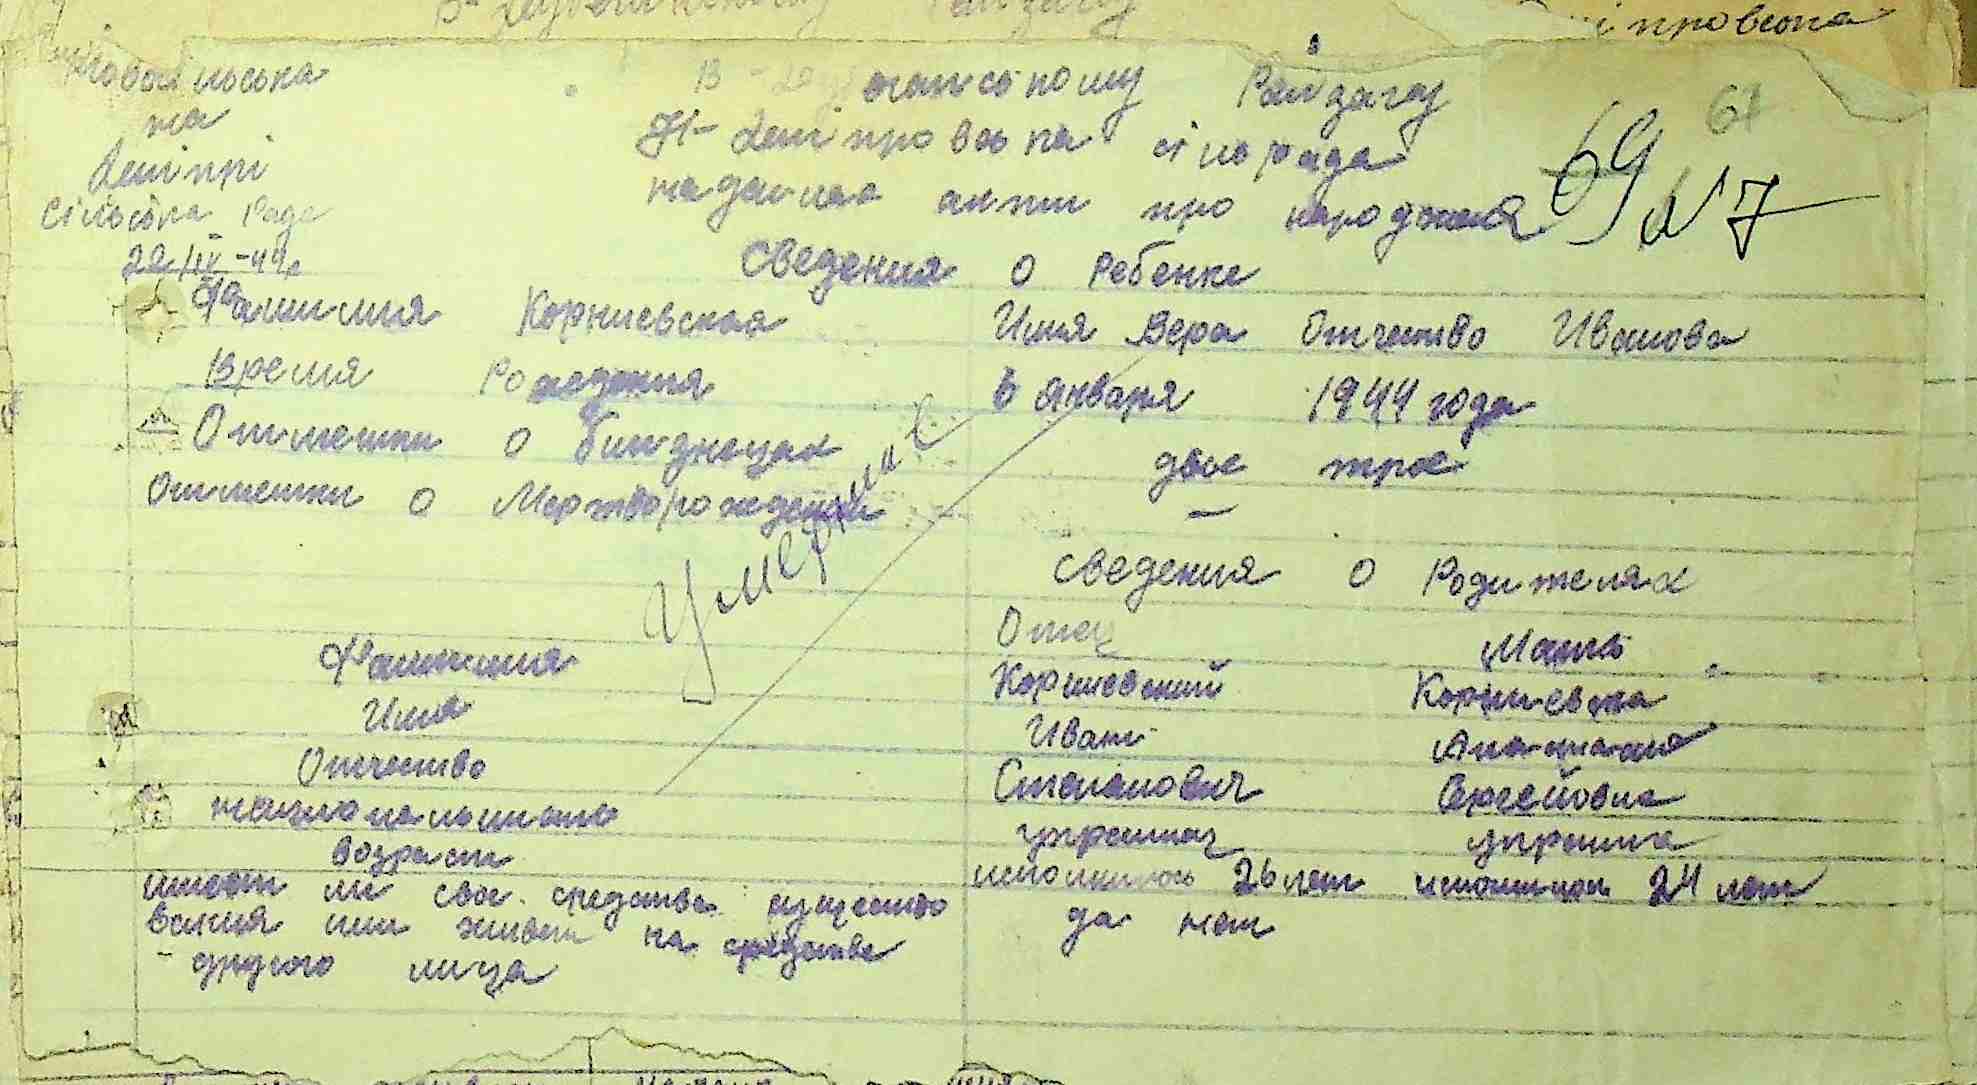 провська
на
Дніпрі
Сільська Рада
22/IV-44р
В-
Райзагсу
Н-Дніпровська сільрада
надсилає акти про народження
67
69
№7
Сведения о Ребенке
Фамилия Корниевская Имя Вера Отчество Иванова
Время Рождения 6 января 1944 года
Отметки о близнецах двое трое
Отметки о Мертворожденом —
Умершие
Сведения о Родителях
Отец Мать
Фамилия Корниевский Корниевска
Имя Иван Анастасия
Отчество Степанович Сергейовна
национальность украинец украинка
Возраст исполнилось 26 лет исполнилось 24 лет
имеет ли свое средства да нет
или живет на средства
другого лица